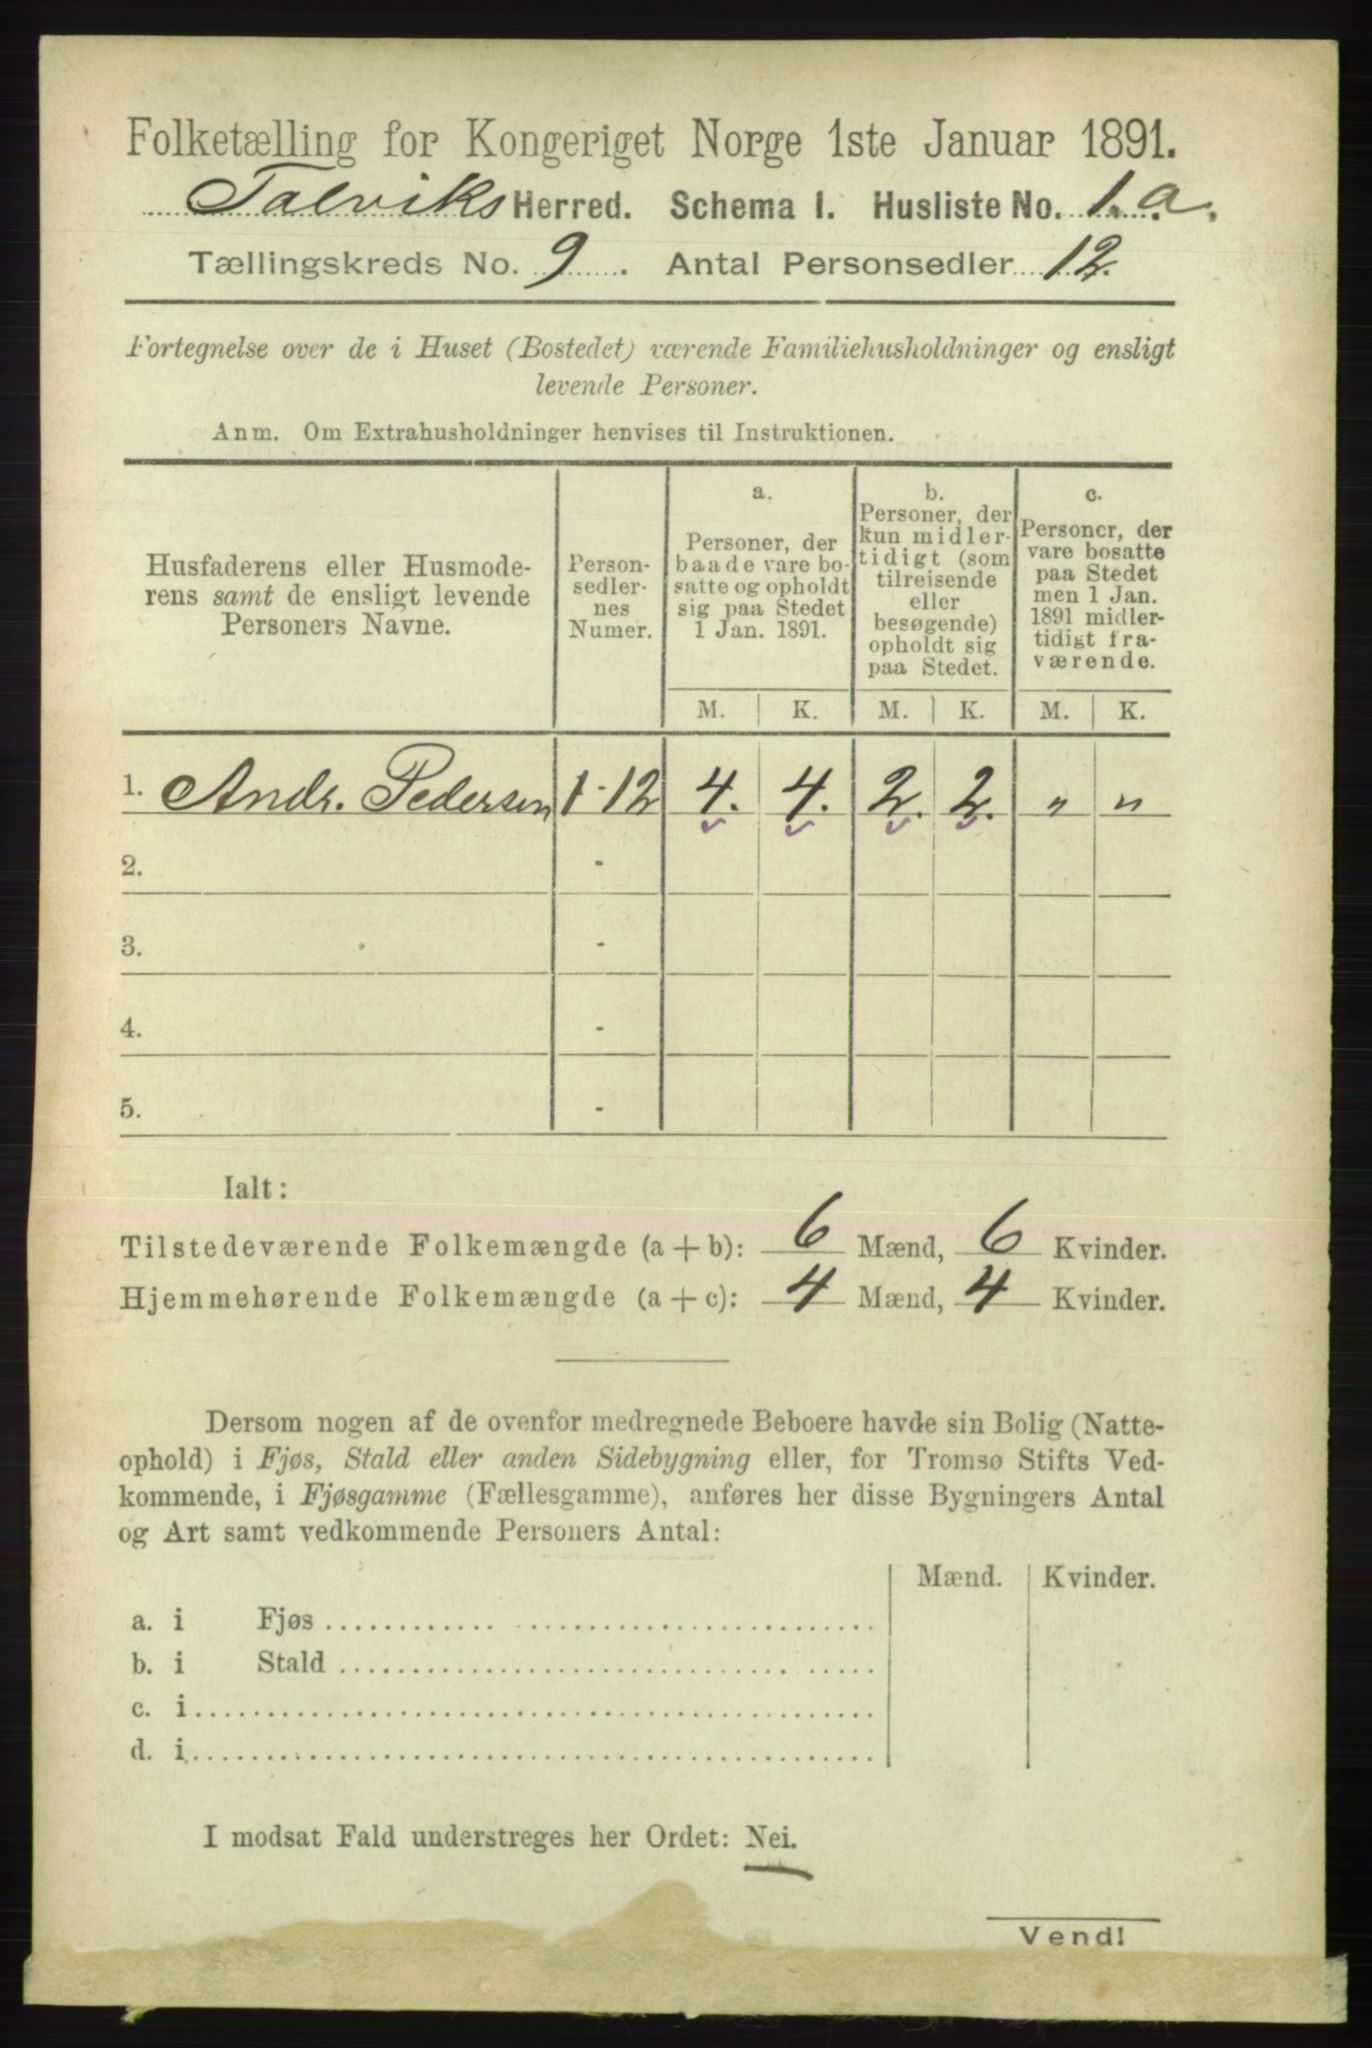 Folketælling for Kongeriget Norge 1ste Januar 1891.
Talviks Herred. Schema I. Husliste No. 1.a.
Tællingskreds No. 9. Antal Personsedler 12.
Fortegnelse over de i Huset (Bostedet) værende Familiehusholdninger og ensligt
levende Personer.
Anm. Om Extrahusholdninger henvises til Instruktionen.
Husfaderens eller Husmode-
rens samt de ensligt levende
Personers Navne.
Person-
sedler-
nes
Numer.
a.
Personer, der
baade vare bo-
satte og opholdt
sig paa Stedet
1 Jan. 1891.
b.
Personer, der
kun midler-
tidigt (som
tilreisende
eller
besøgende)
opholdt sig
paa Stedet.
c.
Personer, der
vare bosatte
paa Stedet
men 1 Jan.
1891 midler-
tidigt fra-
værende.
M. K. M. K. M. K.
1. Andr. Pedersen 1-12 4. 4. 2. 2. „ „
2. -
3. -
4. -
5. -
Ialt:
Tilstedeværende Folkemængde (a+b): 6 Mænd, 6 Kvinder.
Hjemmehørende Folkemængde (a+c): 4 Mænd, 4 Kvinder.
Dersom nogen af de ovenfor medregnede Beboere havde sin Bolig (Natte-
ophold) i Fjøs, Stald eller anden Sidebygning eller, for Tromsø Stifts Ved-
kommende, i Fjøsgamme (Fællesgamme), anføres her disse Bygningers Antal
og Art samt vedkommende Personers Antal:
Mænd. Kvinder.
a. i Fjøs
b. i Stald
c. i
d. i
I modsat Fald understreges her Ordet: Nei.
Vend!